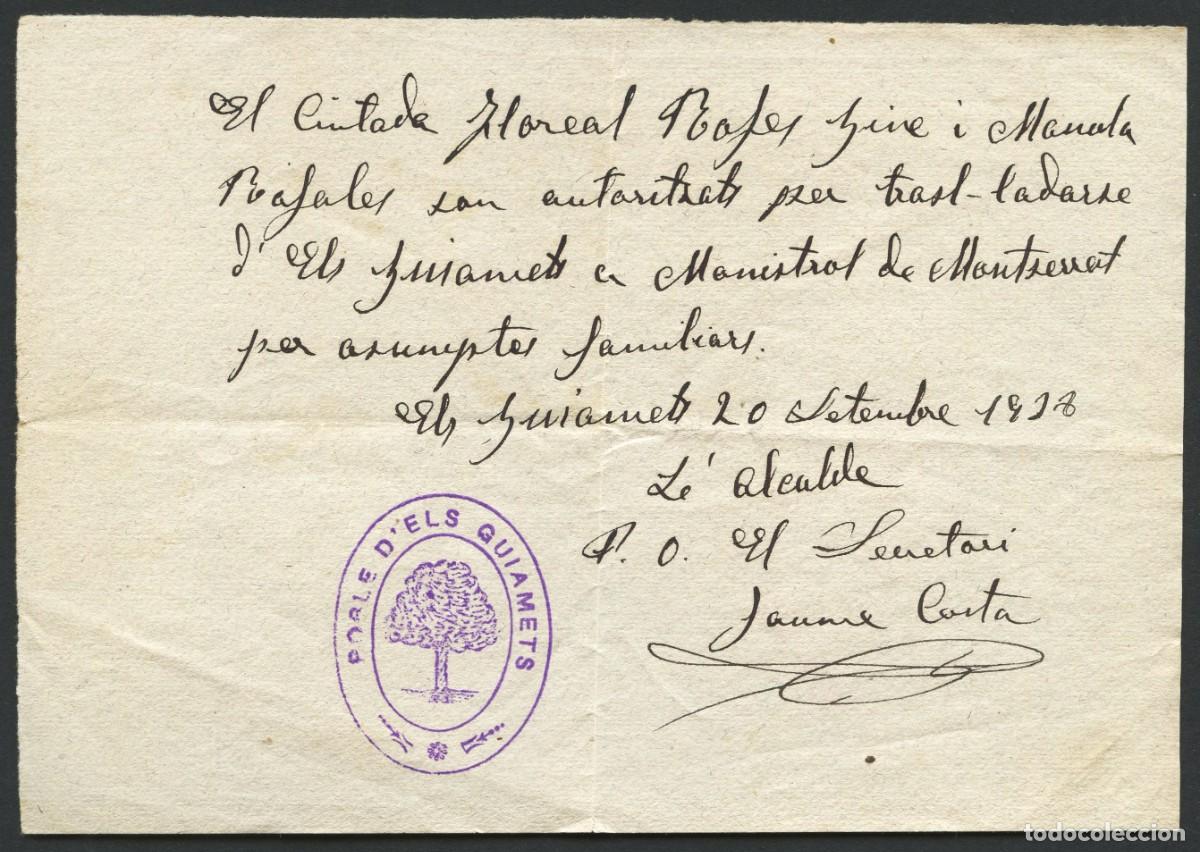 El Ciutada Floreal Rofes Gine i Manola
Rofales son autoritzats per trasl-ladarse
d' Els Guiamets a Monistrol de Montserrat
per asumptes familiars.
Els Guiamets 20 Setembre 1938
Lé Alcalde
P. O. El Secretari
Jaume Costa
POBLE D'ELS GUIAMETS
todocoleccion